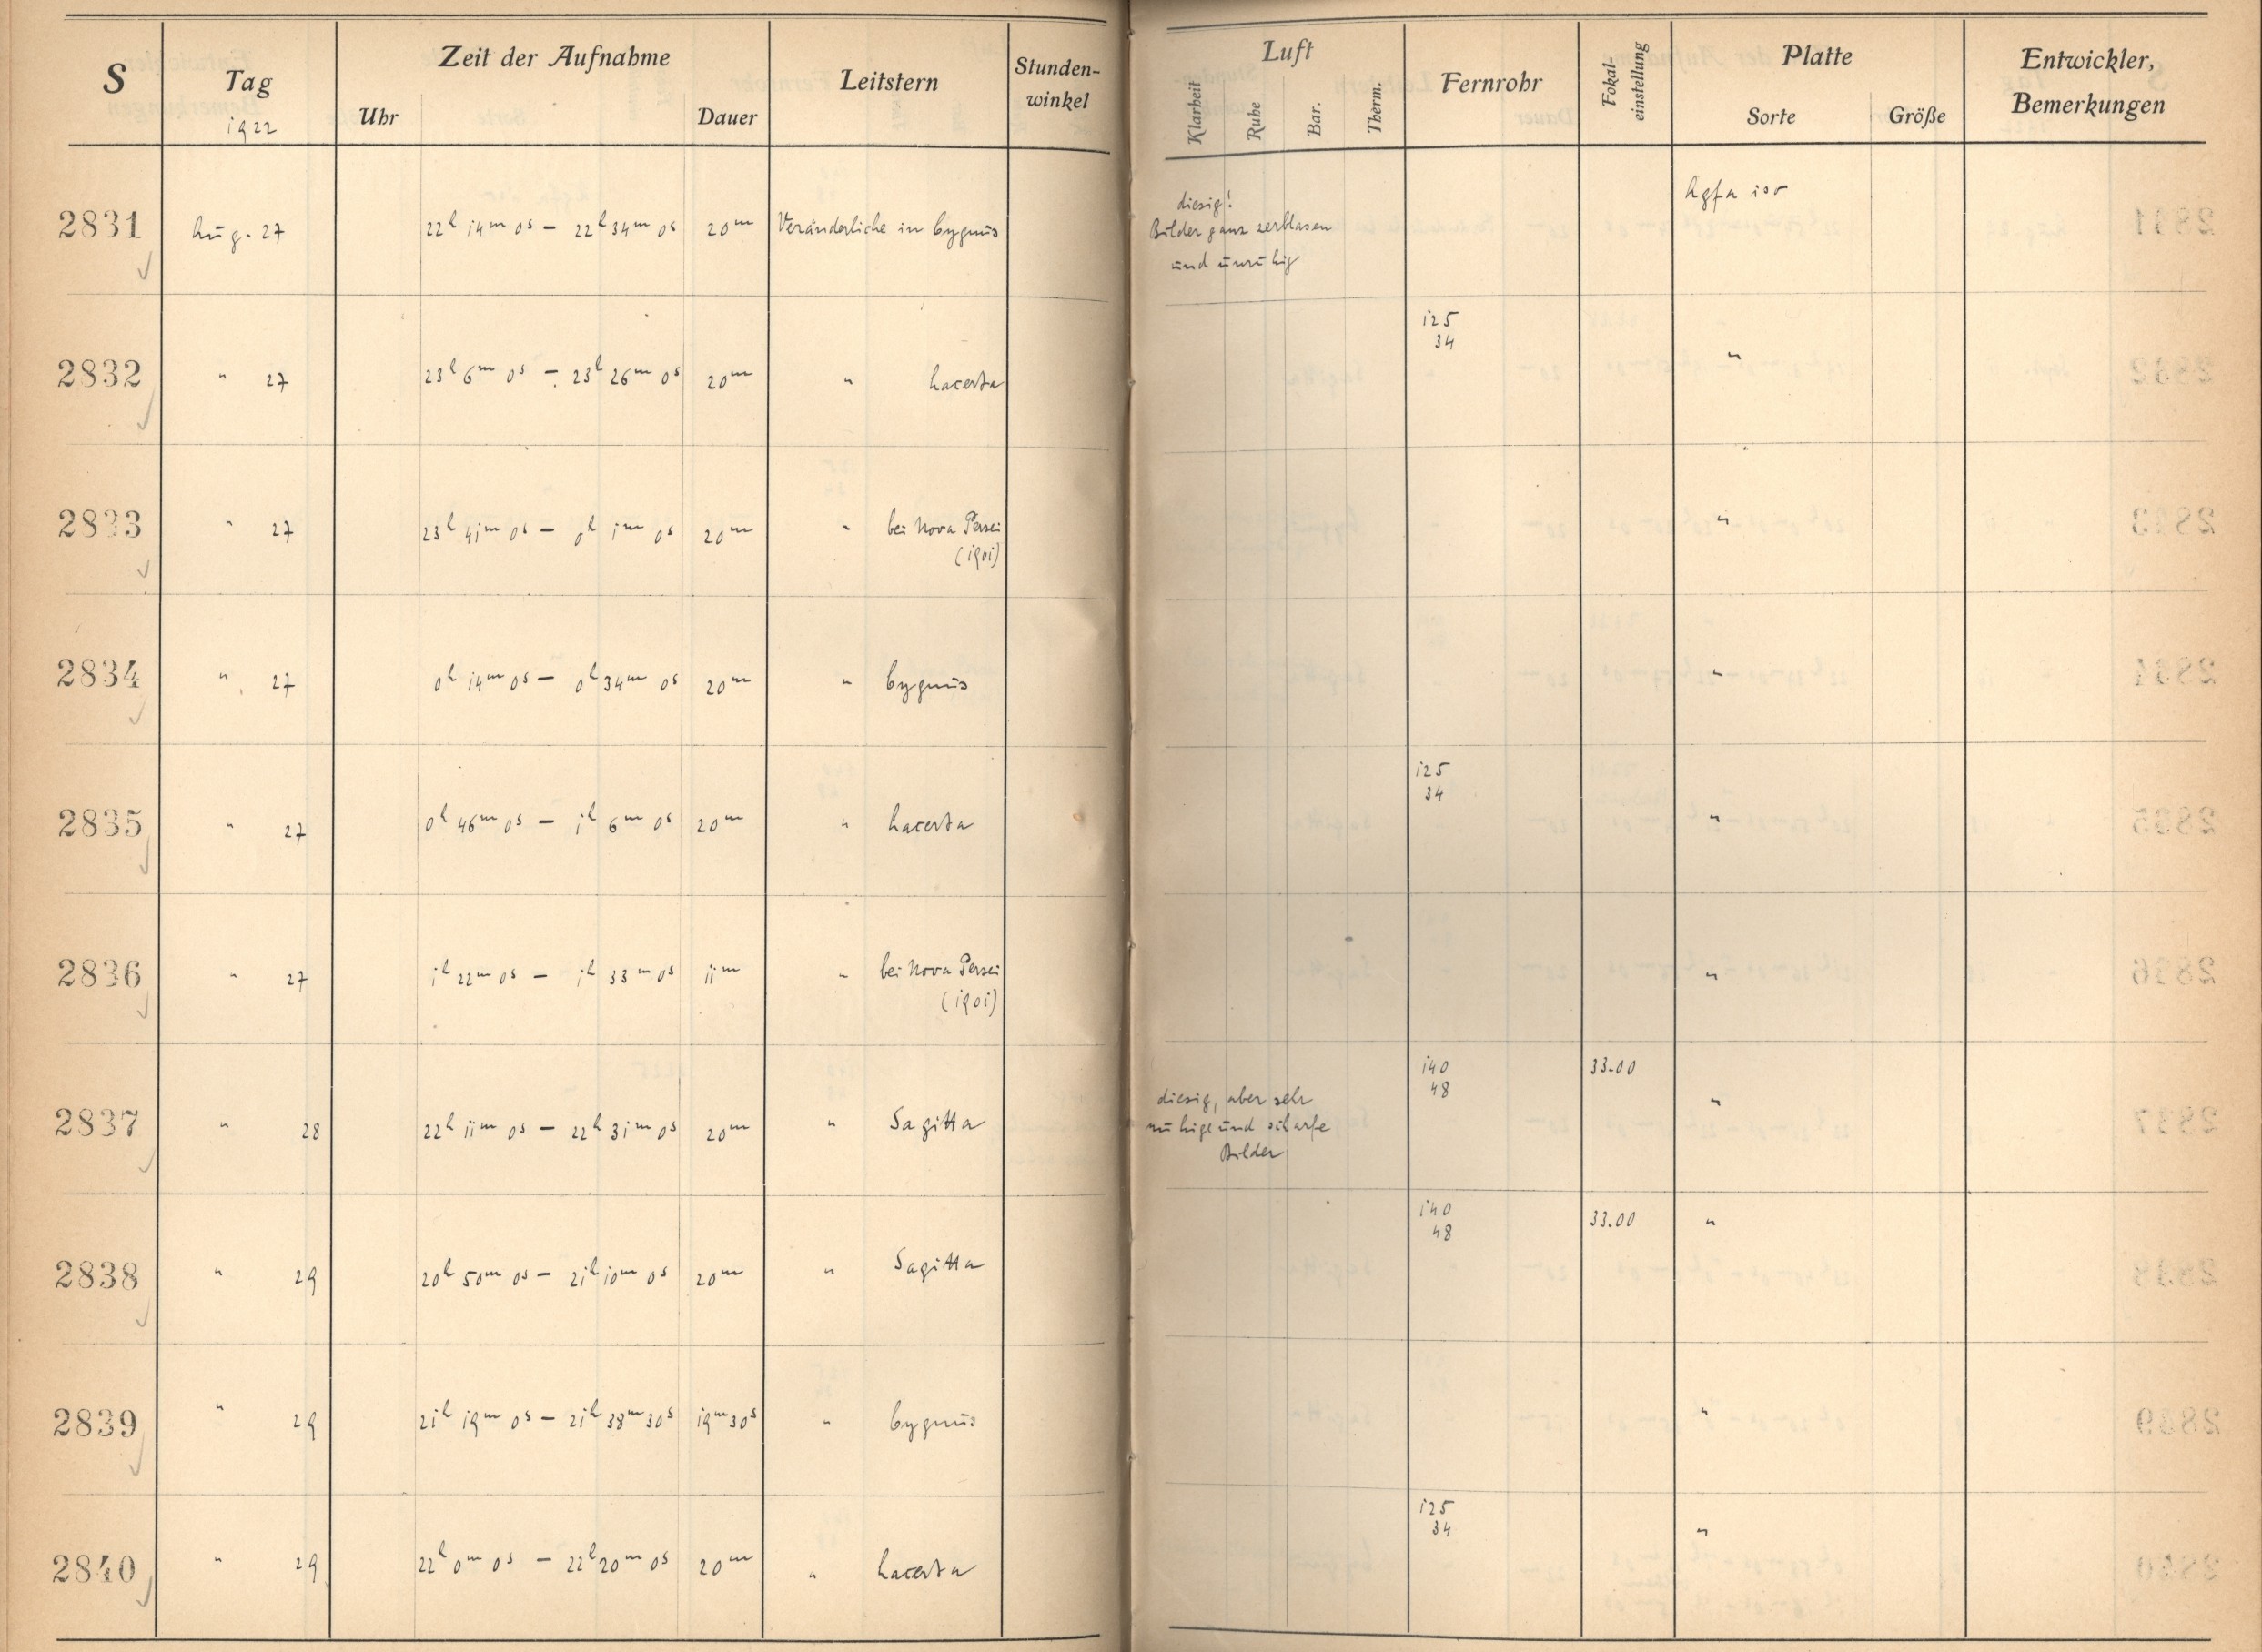 S Tag Zeit der Aufnahme Leitstern Stunden-
winkel Luft Fernrohr Fokal-
einstellung Platte Entwickler,
Bemerkungen
1922 Uhr Dauer Klarheit Ruhe Bar. Therm. Sorte Größe
Agfa iso
diesig!
2831 Aug. 27 22h 14m 0s – 22h 34m 0s 20m Veränderliche in Cygnus Bilder ganz zerblasen
und unruhig
125
34
2832 " 27 23h 6m 0s – 23h 26m 0s 20m " Lacerta "
2833 " 27 23h 41m 0s – 0h 1m 0s 20m " bei Nova Persei "
(1901)
2834 " 27 0h 14m 0s – 0h 34m 0s 20m " Cygnus "
125
34
2835 " 27 0h 46m 0s – 1h 6m 0s 20m " Lacerta "
2836 " 27 1h 22m 0s – 1h 33m 0s 11m " bei Nova Persei "
(1901)
140 33.00
48
diesig, aber sehr
2837 " 28 22h 11m 0s – 22h 31m 0s 20m " Sagitta ruhige und scharfe "
Bilder
140 33.00
48
2838 " 29 20h 50m 0s – 21h 10m 0s 20m " Sagitta "
2839 " 29 21h 19m 0s – 21h 38m 30s 19m 30s " Cygnus "
125
34
2840 " 29 22h 0m 0s – 22h 20m 0s 20m " Lacerta "